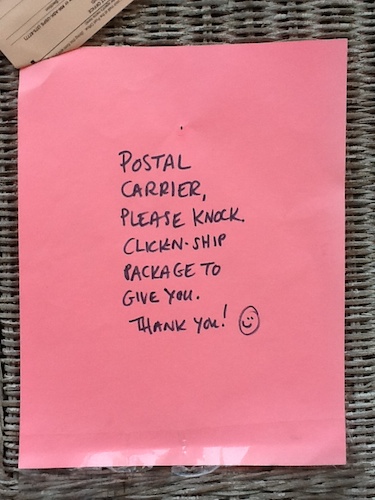 POSTAL
CARRIER,
PLEASE KNOCK.
CLICKN-SHIP
PACKAGE TO
GIVE YOU.
THANK YOU!